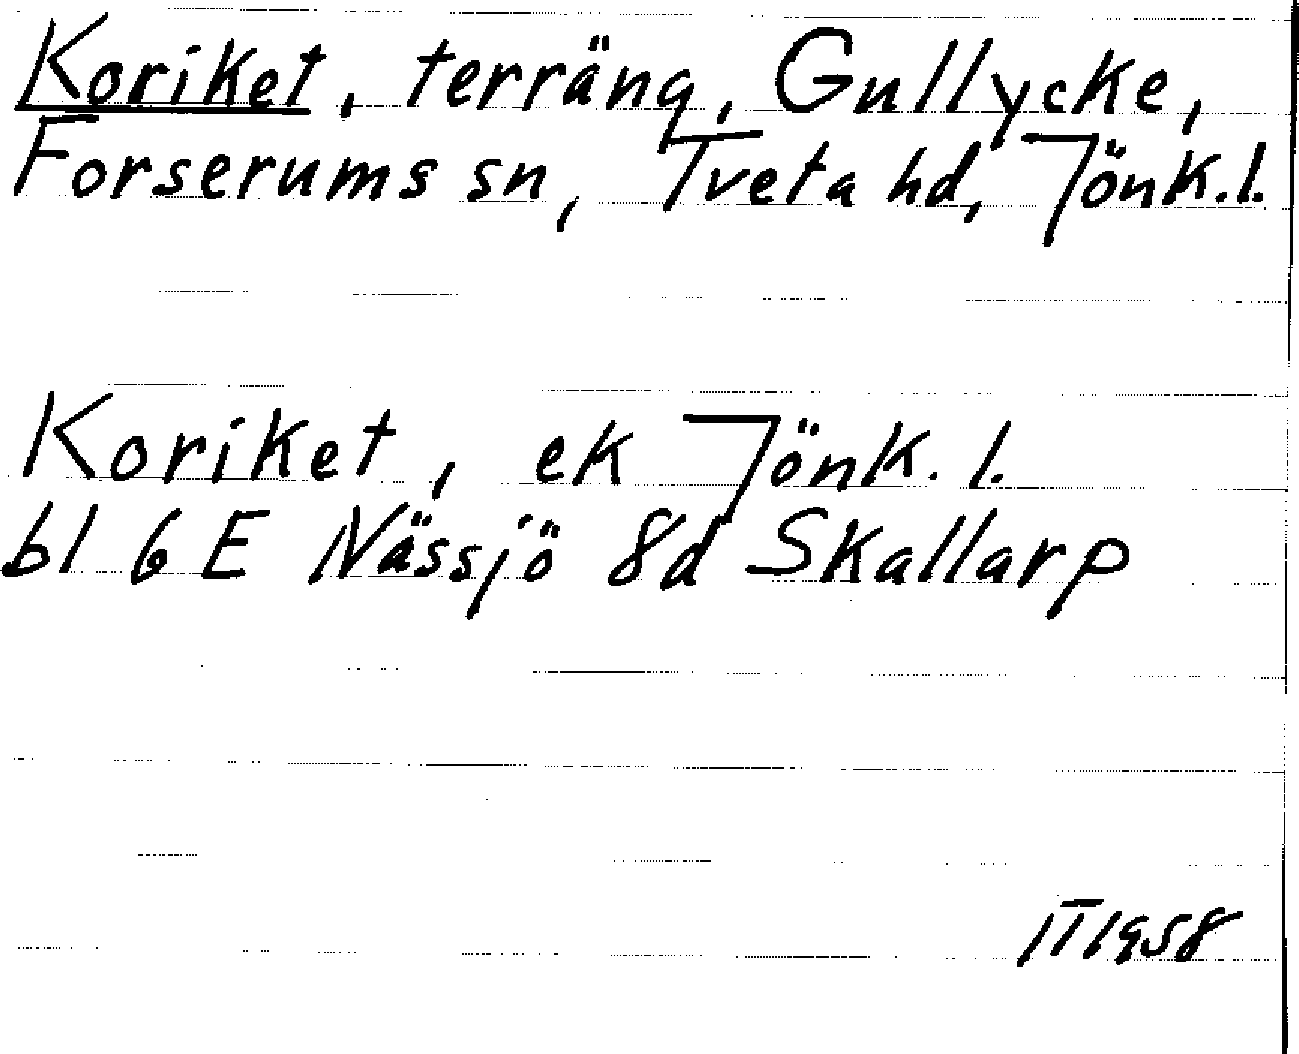 Koriket, terräng, Gullycke,
Forserums sn, Tveta hd, Jönk.l.
Koriket, ek Jönk. l.
bl 6 E Nässjö 8d Skallarp
IT 1958